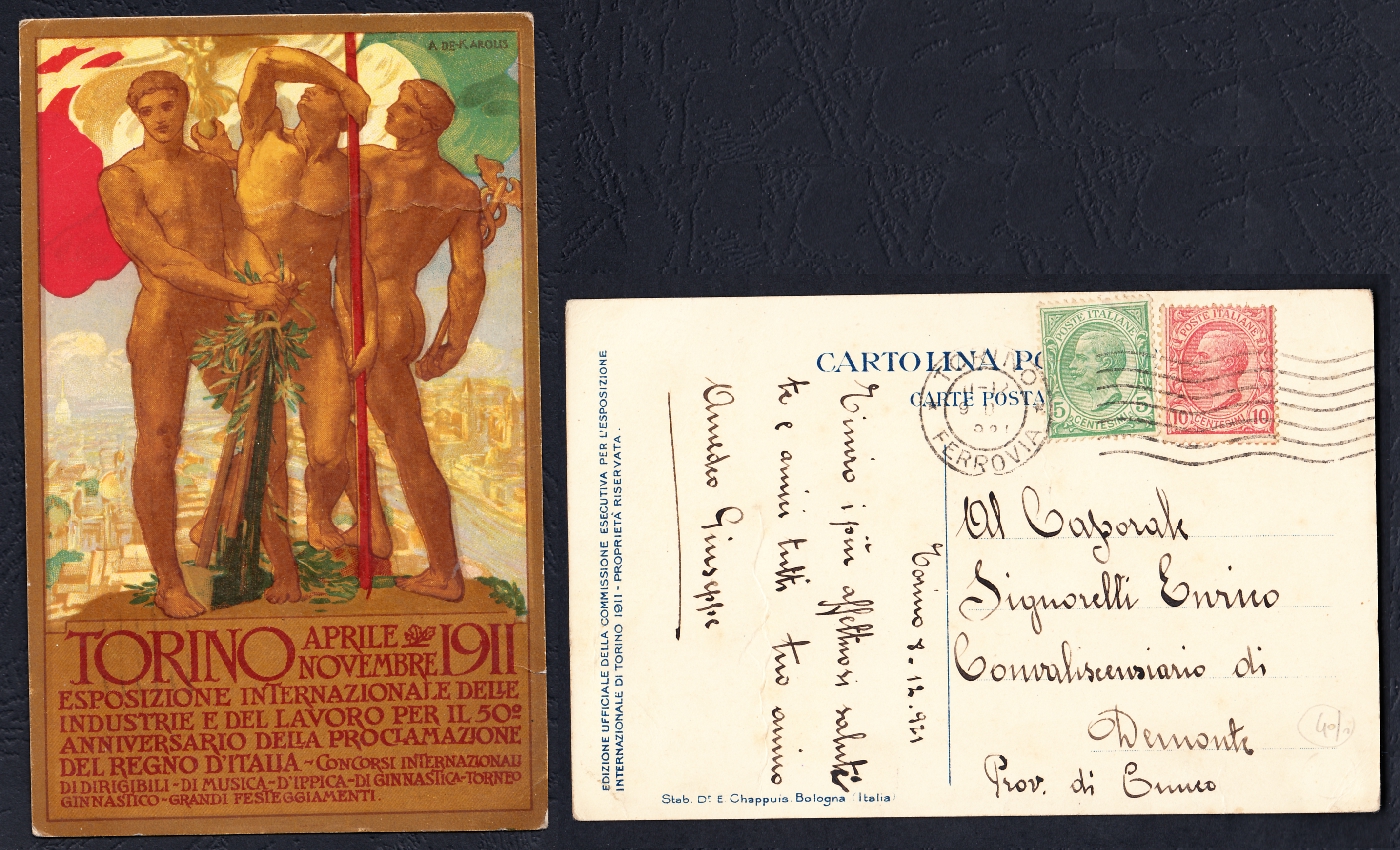 A. DE-KAROLIS
TORINO APRILE NOVEMBRE 1911
ESPOSIZIONE INTERNAZIONALE DELLE
INDUSTRIE E DEL LAVORO PER IL 50º
ANNIVERSARIO DELLA PROCLAMAZIONE
DEL REGNO D'ITALIA - CONCORSI INTERNAZIONALI
DI DIRIGIBILI - DI MUSICA - D'IPPICA - DI GINNASTICA - TORNEO
GINNASTICO - GRANDI FESTEGGIAMENTI.
EDIZIONE UFFICIALE DELLA COMMISSIONE ESECUTIVA PER L'ESPOSIZIONE
INTERNAZIONALE DI TORINO 1911 - PROPRIETÀ RISERVATA.
CARTOLINA PO
CARTE POSTA
TORINO
FERROVIA
POSTE ITALIANE
5 5
CENTESIMI
POSTE ITALIANE
10 10
CENTESIMI
Torino 8.12.921
i più affettuosi saluti
te e amici tutti tuo amico
Amedeo Giuseppe
Al Caporale
Signorelli Enrico
Convaliscensiario di
Demonte
Prov. di Cuneo
Stab. Dº E. Chappuis. Bologna (Italia)